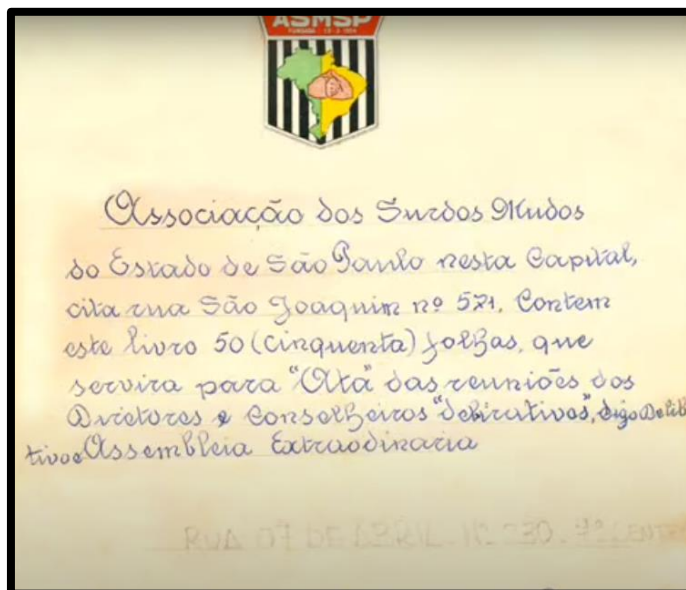 ASMSP
Associação dos Surdos Mudos
do Estado de São Paulo nesta Capital,
cita rua São Joaquim nº 571. Contem
este livro 50 (cinquenta) folhas, que
servira para "Ata" das reuniões dos
Diretores e Conselheiros "debirativos", digo Delib
tivo e Assembleia Extraodinaria
RUA